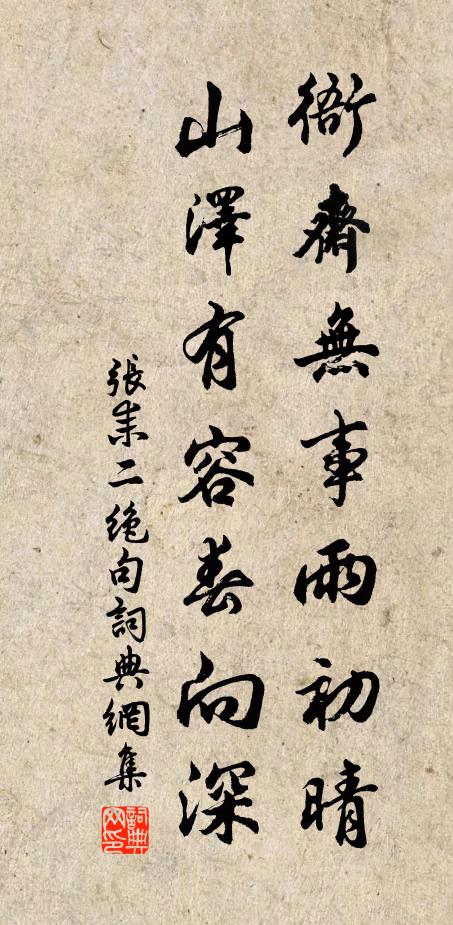 衙齋無事雨初晴
山澤有容春向深
張耒二絶句詞典網集
詞典網印